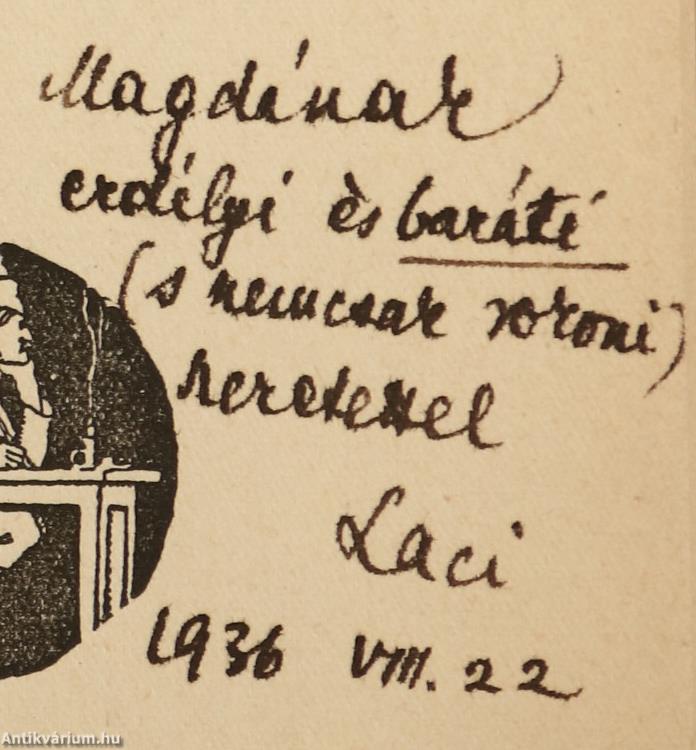 Magdának
erdélyi és baráti
(s nemcsak rokoni)
szeretettel
Laci
1936 VIII. 22
Antikvárium.hu